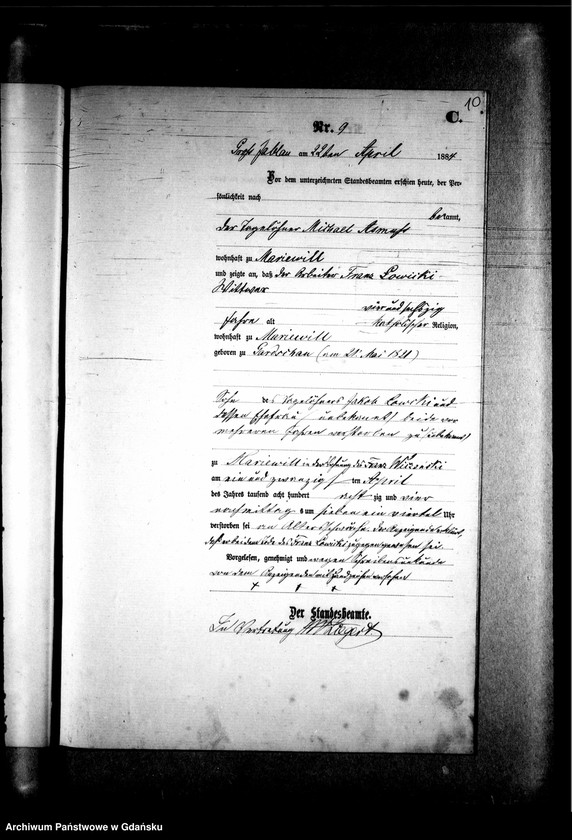 10.
C.
Nr. 9
Groß Jablau am 22ten April 1884
Vor dem unterzeichneten Standesbeamten erschien heute, der Per-
sönlichkeit nach
bekannt,
der Tagelöhner Michael
wohnhaft zu Mariewill
und zeigte an, daß der Arbeiter Franz Lowicki
Wittwer
vier und sechszig
Jahre alt katholischer Religion,
wohnhaft zu Mariewill
geboren zu (am 21. Mai 1821)
Sohn des Tagelöhners Jakob und
dessen Ehefrau unbekannt beide vor
mehreren Jahren verstorben
zu Mariewill in der Wohnung des Franz
am ein und zwanzigsten April
des Jahres tausend acht hundert acht zig und vier
nachmittags um sieben ein viertel Uhr
verstorben sei an Altersschwäche. Der Anzeigende erklärt,
daß er bei dem Tode des Franz Lowicki zugegen gewesen sei.
Vorgelesen, genehmigt und wegen Schreibensunkunde
von dem Anzeigenden mit Handzeichen versehen
+ + +
Der Standesbeamte.
In Vertretung
Archiwum Państwowe w Gdańsku